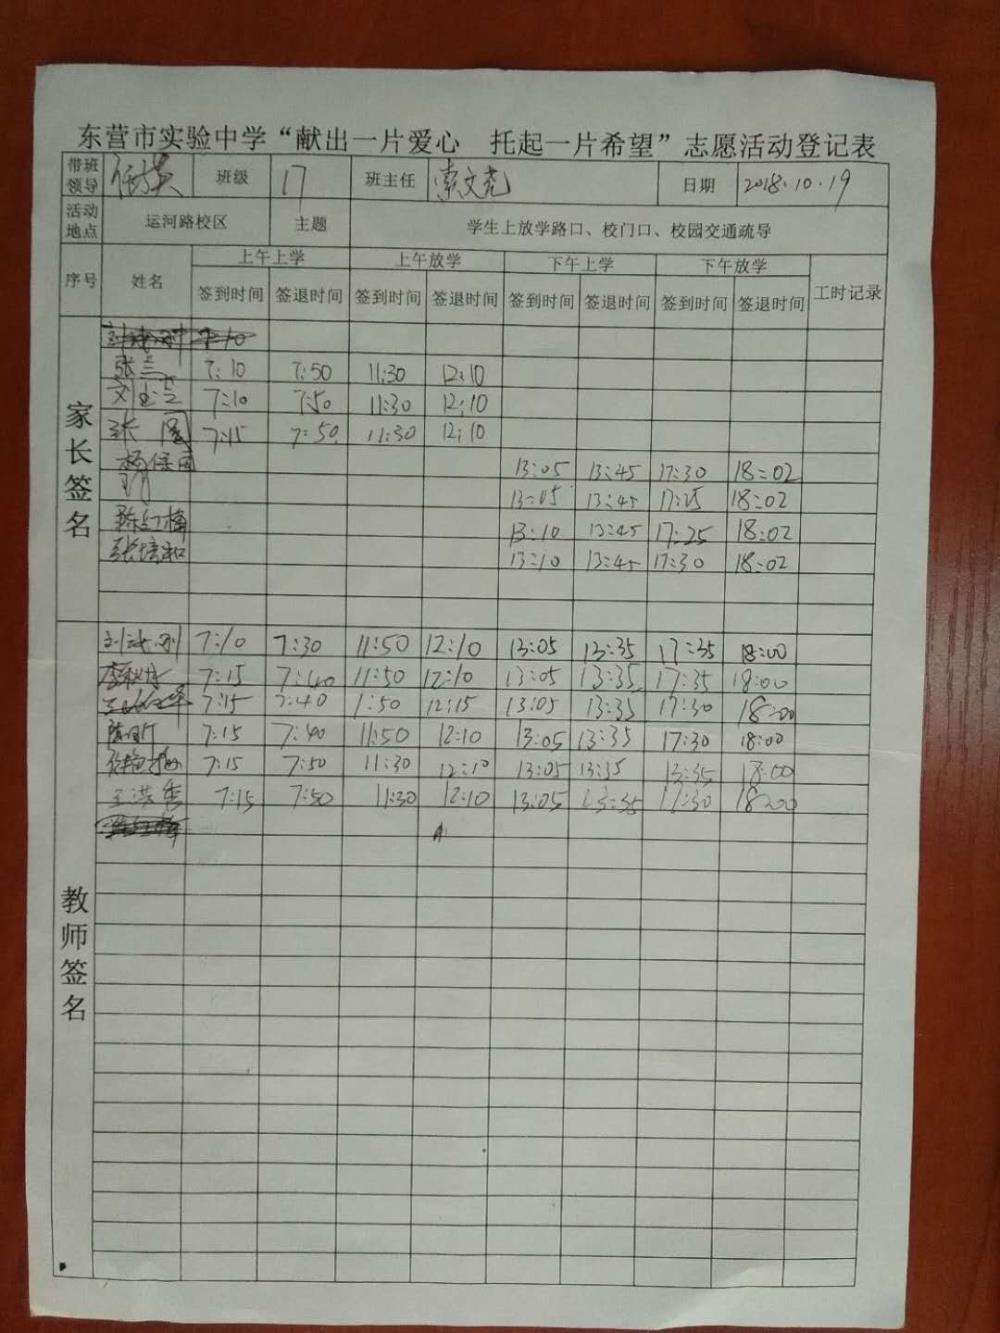 东营市实验中学“献出一片爱心 托起一片希望”志愿活动登记表
带班领导 班级 17 班主任 索文亮 日期 2018.10.19
活动地点 运河路校区 主题 学生上放学路口、校门口、校园交通疏导
序号 姓名 上午上学 上午放学 下午上学 下午放学 工时记录
签到时间 签退时间 签到时间 签退时间 签到时间 签退时间 签到时间 签退时间
家长签名
张兰 7:10 7:50 11:30 12:10
7:10 7:50 11:30 12:10
张 7:15 7:50 11:30 12:10
杨保国 13:05 13:45 17:30 18:02
13:05 13:45 17:25 18:02
陈红梅 13:10 13:45 17:25 18:02
张培和 13:10 13:45 17:30 18:02
教师签名
7:10 7:30 11:50 12:10 13:05 13:35 17:35 18:00
7:15 7:40 11:50 12:10 13:05 13:35 17:35 18:00
7:15 7:40 1:50 12:15 13:05 13:35 17:30 18:00
7:15 7:40 11:50 12:10 13:05 13:35 17:30 18:00
7:15 7:50 11:30 12:10 13:05 13:35 13:35 18:00
王洪秀 7:15 7:50 11:30 12:10 13:05 13:35 17:30 18:00